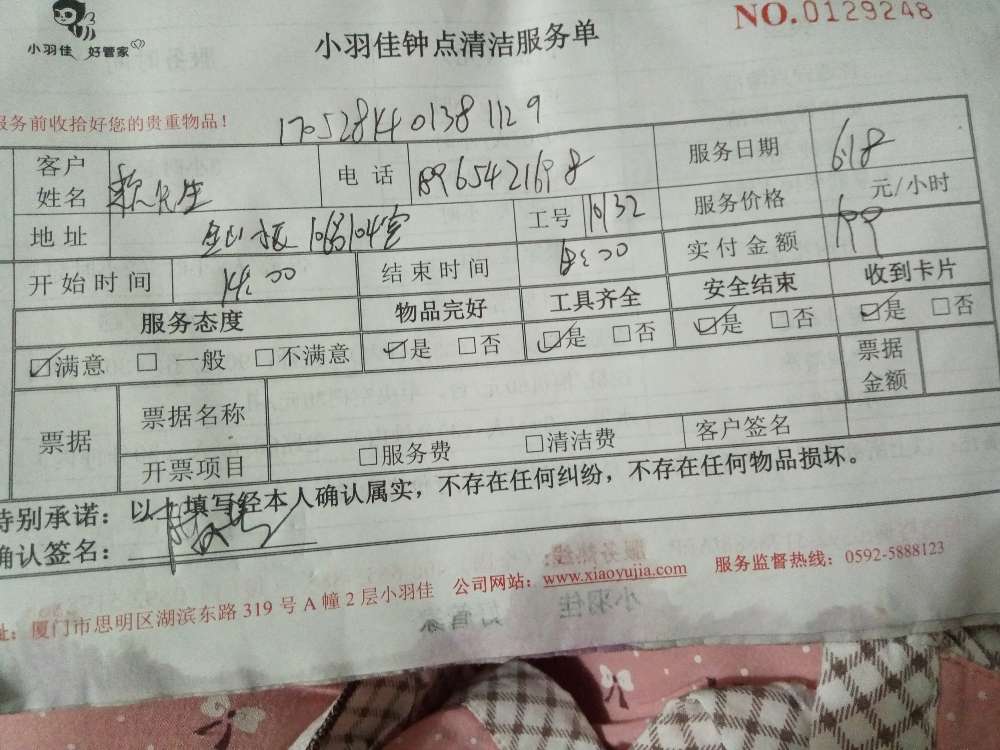 小羽佳 好管家
小羽佳钟点清洁服务单
NO.0129248
服务前收拾好您的贵重物品！
170528140138 1129
客户姓名 赖先生 电话 18965421698 服务日期 6.18
地址 工号 服务价格 元/小时
开始时间 14:00 结束时间 18:00 实付金额 199
服务态度 物品完好 工具齐全 安全结束 收到卡片
☑满意 □一般 □不满意 ☑是 □否 ☑是 □否 ☑是 □否 ☑是 □否
票据 票据名称 票据金额
开票项目 □服务费 □清洁费 客户签名
特别承诺：以上填写经本人确认属实，不存在任何纠纷，不存在任何物品损坏。
确认签名：
址：厦门市思明区湖滨东路319号A幢2层小羽佳 公司网站：www.xiaoyujia.com 服务监督热线：0592-5888123